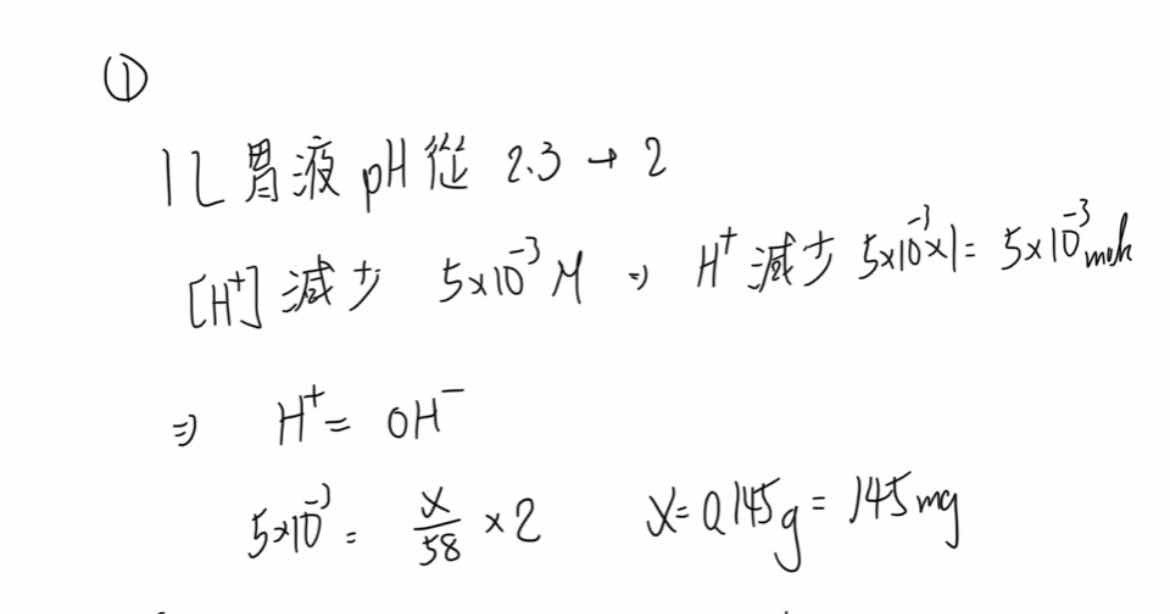 ①
1L 胃液 pH 從 2.3 → 2
[H⁺] 減少 5×10⁻³ M ⇒ H⁺ 減少 5×10⁻³×1 = 5×10⁻³ mole
⇒ H⁺ = OH⁻
5×10⁻³ = x/58 × 2 X = 0.145g = 145 mg